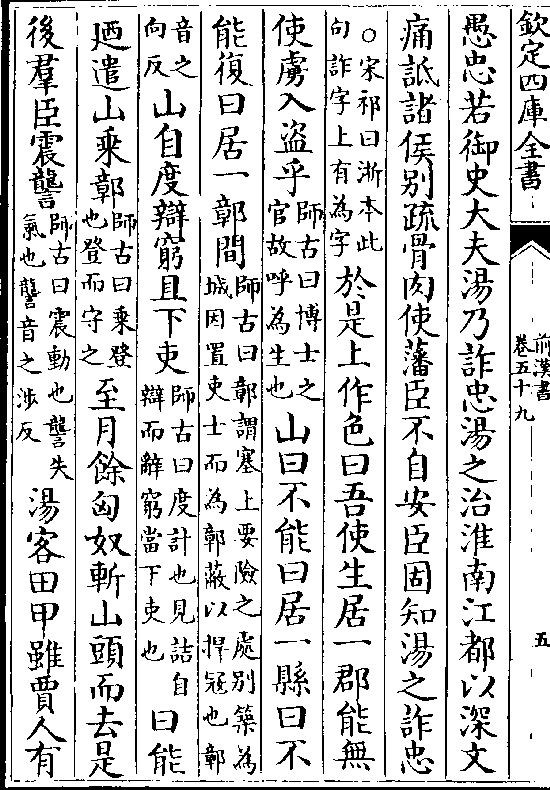 欽定四庫全書
前漢書
卷五十九
五
愚忠若御史大夫湯乃詐忠湯之治淮南江都以深文
痛詆諸侯别疏骨肉使藩臣不自安臣固知湯之詐忠
○宋祁曰淅本此
句詐字上有為字
於是上作色曰吾使生居一郡能無
使虜入盗乎
師古曰博士之
官故呼為生也
山曰不能曰居一縣曰不
能復曰居一鄣間
師古曰鄣謂塞上要險之處别築為
城因置吏士而為鄣蔽以捍寇也鄣
音之
向反
山自度辯窮且下吏
師古曰度計也見詰自
辯而辭窮當下吏也
曰能
廼遣山乘鄣
師古曰乘登
也登而守之
至月餘匈奴斬山頭而去是
後羣臣震讋
師古曰震動也讋失
氣也讋音之涉反
湯客田甲雖賈人有